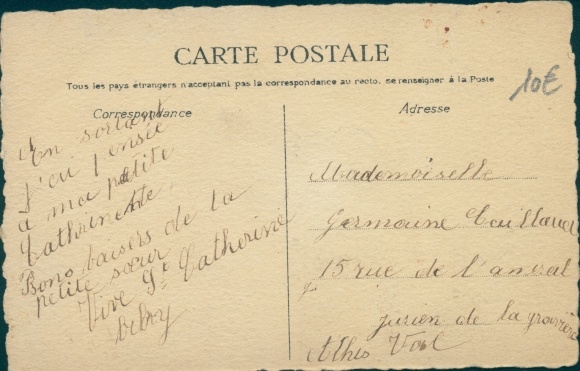 CARTE POSTALE
Tous les pays étrangers n'acceptant pas la correspondance au recto, se renseigner à la Poste
10€
Correspondance
Adresse
En sortant
J'ai pensée
à ma petite
Cathrinette
Bons baisers de la
petite sœur
Vive Ste Catherine
Mademoiselle
Germaine
15 rue de l'amiral
jurien de la
Athis